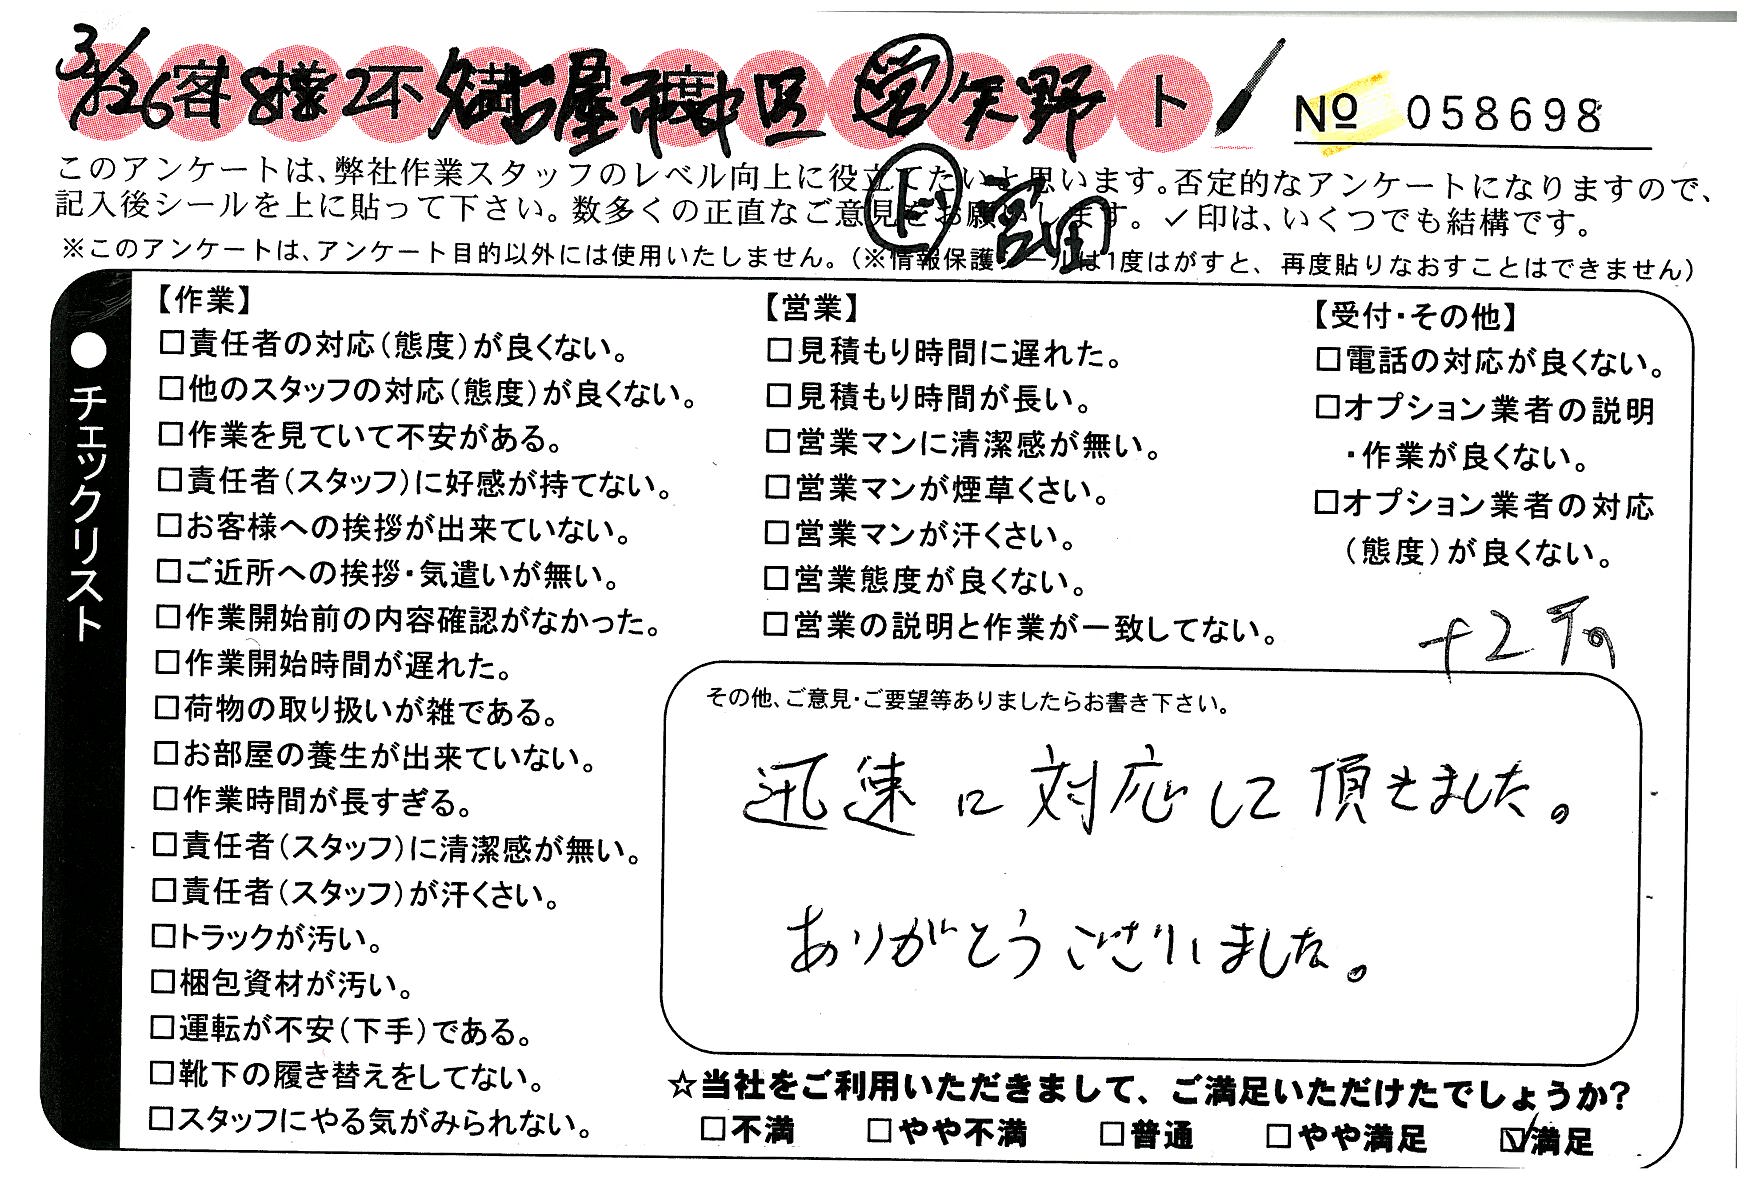 3/26 882 名古屋市中区 営 矢野
客様不満度ト
No 058698
このアンケートは、弊社作業スタッフのレベル向上に役立てたいと思います。否定的なアンケートになりますので、
記入後シールを上に貼って下さい。数多くの正直なご意見をお願いします。✓印は、いくつでも結構です。
宮田
※このアンケートは、アンケート目的以外には使用いたしません。(※情報保護シールは1度はがすと、再度貼りなおすことはできません)
●チェックリスト
【作業】
□責任者の対応(態度)が良くない。
□他のスタッフの対応(態度)が良くない。
□作業を見ていて不安がある。
□責任者(スタッフ)に好感が持てない。
□お客様への挨拶が出来ていない。
□ご近所への挨拶・気遣いが無い。
□作業開始前の内容確認がなかった。
□作業開始時間が遅れた。
□荷物の取り扱いが雑である。
□お部屋の養生が出来ていない。
□作業時間が長すぎる。
□責任者(スタッフ)に清潔感が無い。
□責任者(スタッフ)が汗くさい。
□トラックが汚い。
□梱包資材が汚い。
□運転が不安(下手)である。
□靴下の履き替えをしてない。
□スタッフにやる気がみられない。
【営業】
□見積もり時間に遅れた。
□見積もり時間が長い。
□営業マンに清潔感が無い。
□営業マンが煙草くさい。
□営業マンが汗くさい。
□営業態度が良くない。
□営業の説明と作業が一致してない。
【受付・その他】
□電話の対応が良くない。
□オプション業者の説明
・作業が良くない。
□オプション業者の対応
(態度)が良くない。
+2
その他、ご意見・ご要望等ありましたらお書き下さい。
迅速に対応して頂きました。
ありがとうございました。
☆当社をご利用いただきまして、ご満足いただけたでしょうか?
□不満 □やや不満 □普通 □やや満足 ☑満足